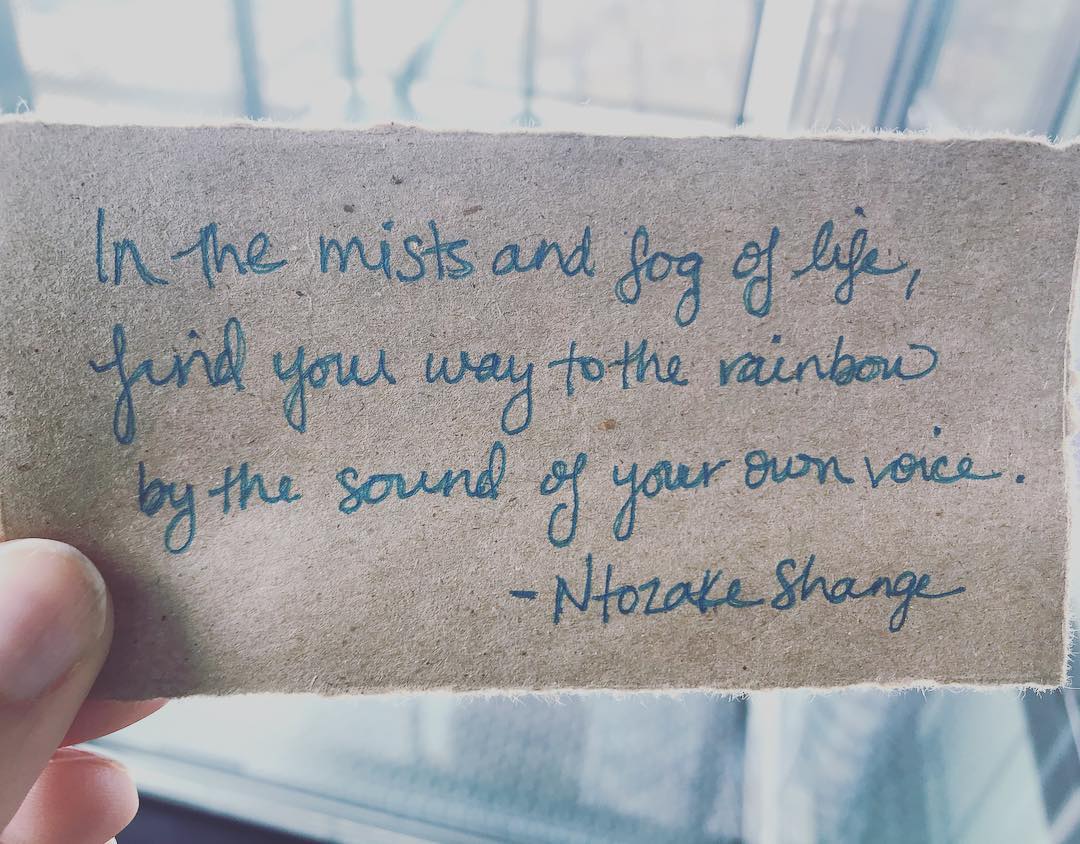 In the mists and fog of life,
find your way to the rainbow
by the sound of your own voice.
- Ntozake Shange